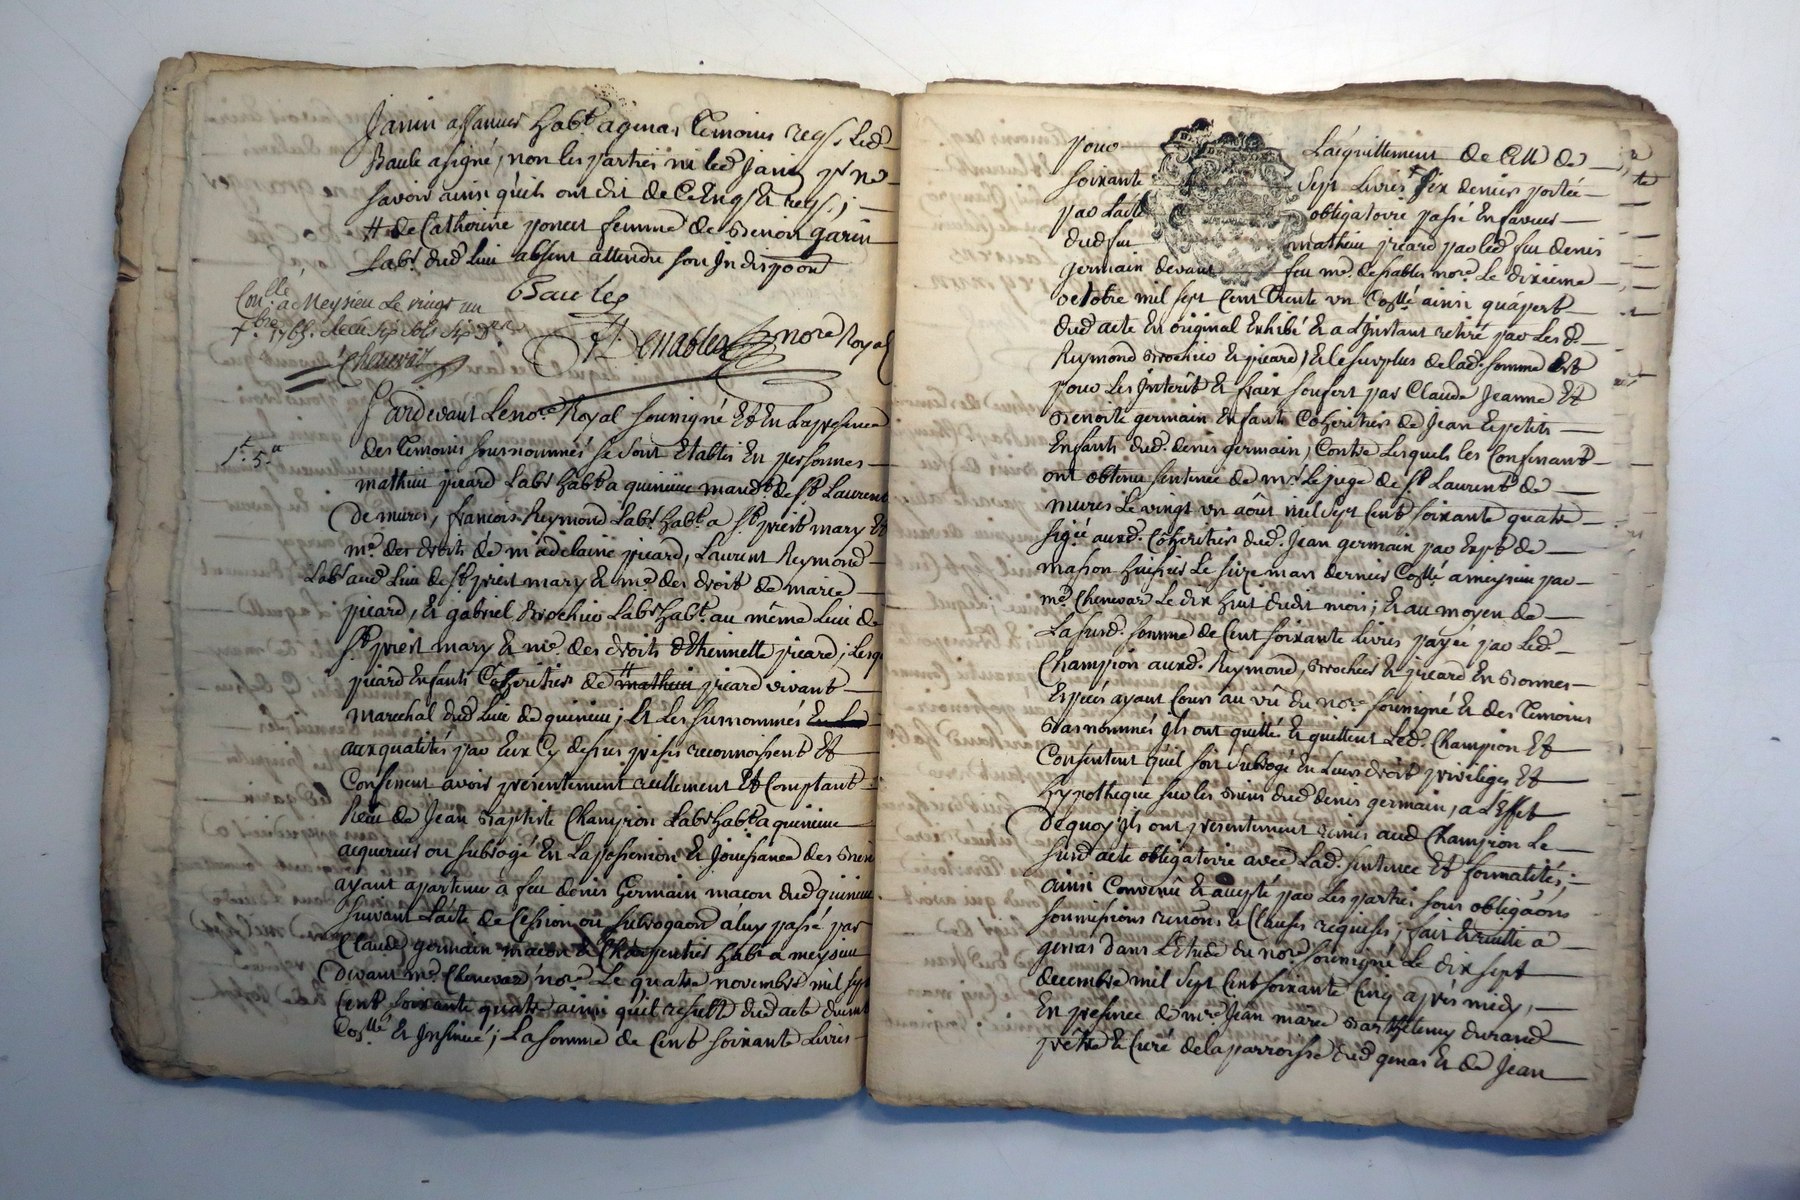 Janin affanur habt a genas temoins reqs. Led.
Baule a signé, non les parties ni led Janin pr ne
savoir ainsi qu'ils ont dit de ce enqs et reqs;
# de Catherine poncet femme de Benoit garin
Labr. dud. Lieu absent attendu son Indispoon
Baules
Conllé a Meysieu Le vingt un
xbre 1765. Reçu six sols six drs
Chenevas
Demables nore Royal
Pardevant Le nore Royal soussigné Et En La presence
1# 5s
des temoins sousnommés se sont Etablis En personnes
mathieu picard Labr habt a quinieu mandt de st Laurent
De mures, françois Reymond Labr. habt. a st. priest mary Et
me. des droits de madelaine picard, Laurent Reymond
Labr aud. Lieu de st priest mary Et me. des droits de marie
picard, Et gabriel Brochier Labr habt. au même Lieu de
st. priest mary Et me. des droits d'Etiennette picard, Lesqs
picard Enfants Coheritiers de # mathieu picard vivant
marechal dud Lieu de quinieu; Et Les susnommés
aux qualités par Eux Cy dessus prises reconnoissent Et
Confessent avoir présentement reellement Et Comptant
Reçu de Jean Baptiste Champion Labr habt a quinieu
acquereur ou subrogé En La possession Et Jouissance des Biens
ayant appartenu a feu denis Germain macon dud quinieu
suivant L'acte de Cession ou subrogaon à luy passé par
Claude germain macon & Charpentier habt a meysieu
devant me. Chenevas nore. Le quatre novembre mil sept
Cent soixante quatre ainsi qu'il resulte dud acte duemt
Conllé Et Insinué; La somme de Cent soixante Livres
pour L'acquittement de Celle de
soixante sept Livres six deniers portée
par L'acte obligatoire passé En faveur
dud feu mathieu picard par led. feu denis
germain devant feu me. desables nore. Le dixieme
octobre mil sept Cent Trente un Conllé ainsi qu'apert
dud acte En original Exhibé Et a L'Instant retiré par Lesd.
Reymond Brochier Et picard, Et le surplus de lad. somme Est
pour Les Interêt Et fraix souffert par Claude Jeanne Et
Benoite germain Enfants Coheritiers de Jean Et petits
Enfants dud. denis germain, Contre Lesquels les Confessants
ont obtenu sentence de mr. Le juge de st Laurent de
mures Le vingt un août mil sept Cent soixante quatre
sigée auxd. Coheritiers dud. Jean germain par Expt de
masson huissier Le seize mars dernier Conllé a meysieu par
me. Chenevas Le dix huit dudit mois; Et au moyen de
La susd. somme de Cent soixante Livres payée par Led.
Champion auxd. Reymond, Brochier Et picard En Bonnes
Especes ayant Cours au vû du nore. soussigné Et des temoins
Bas nommés Ils ont quitté Et quittent Led. Champion Et
Consentent qu'il soit subrogé En Leurs droit privileges Et
hypotheque sur les Biens dud denis germain, a L'Effet
de quoy Ils ont présentement remis aud Champion Le
susd acte obligatoire avec Lad. sentence Et formalités;
ainsi Convenû Et accepté par Les parties sous obligaons
soumissions renons Et Clauses requises; fait Et recitté a
genas dans L'Etude du nore. soussigné Le dix sept
decembre mil sept Cent soixante Cinq après midy,
En presence de mre. Jean marie Barthelemy durand
prêtre Et Curé de la parroisse dud genas Et de Jean